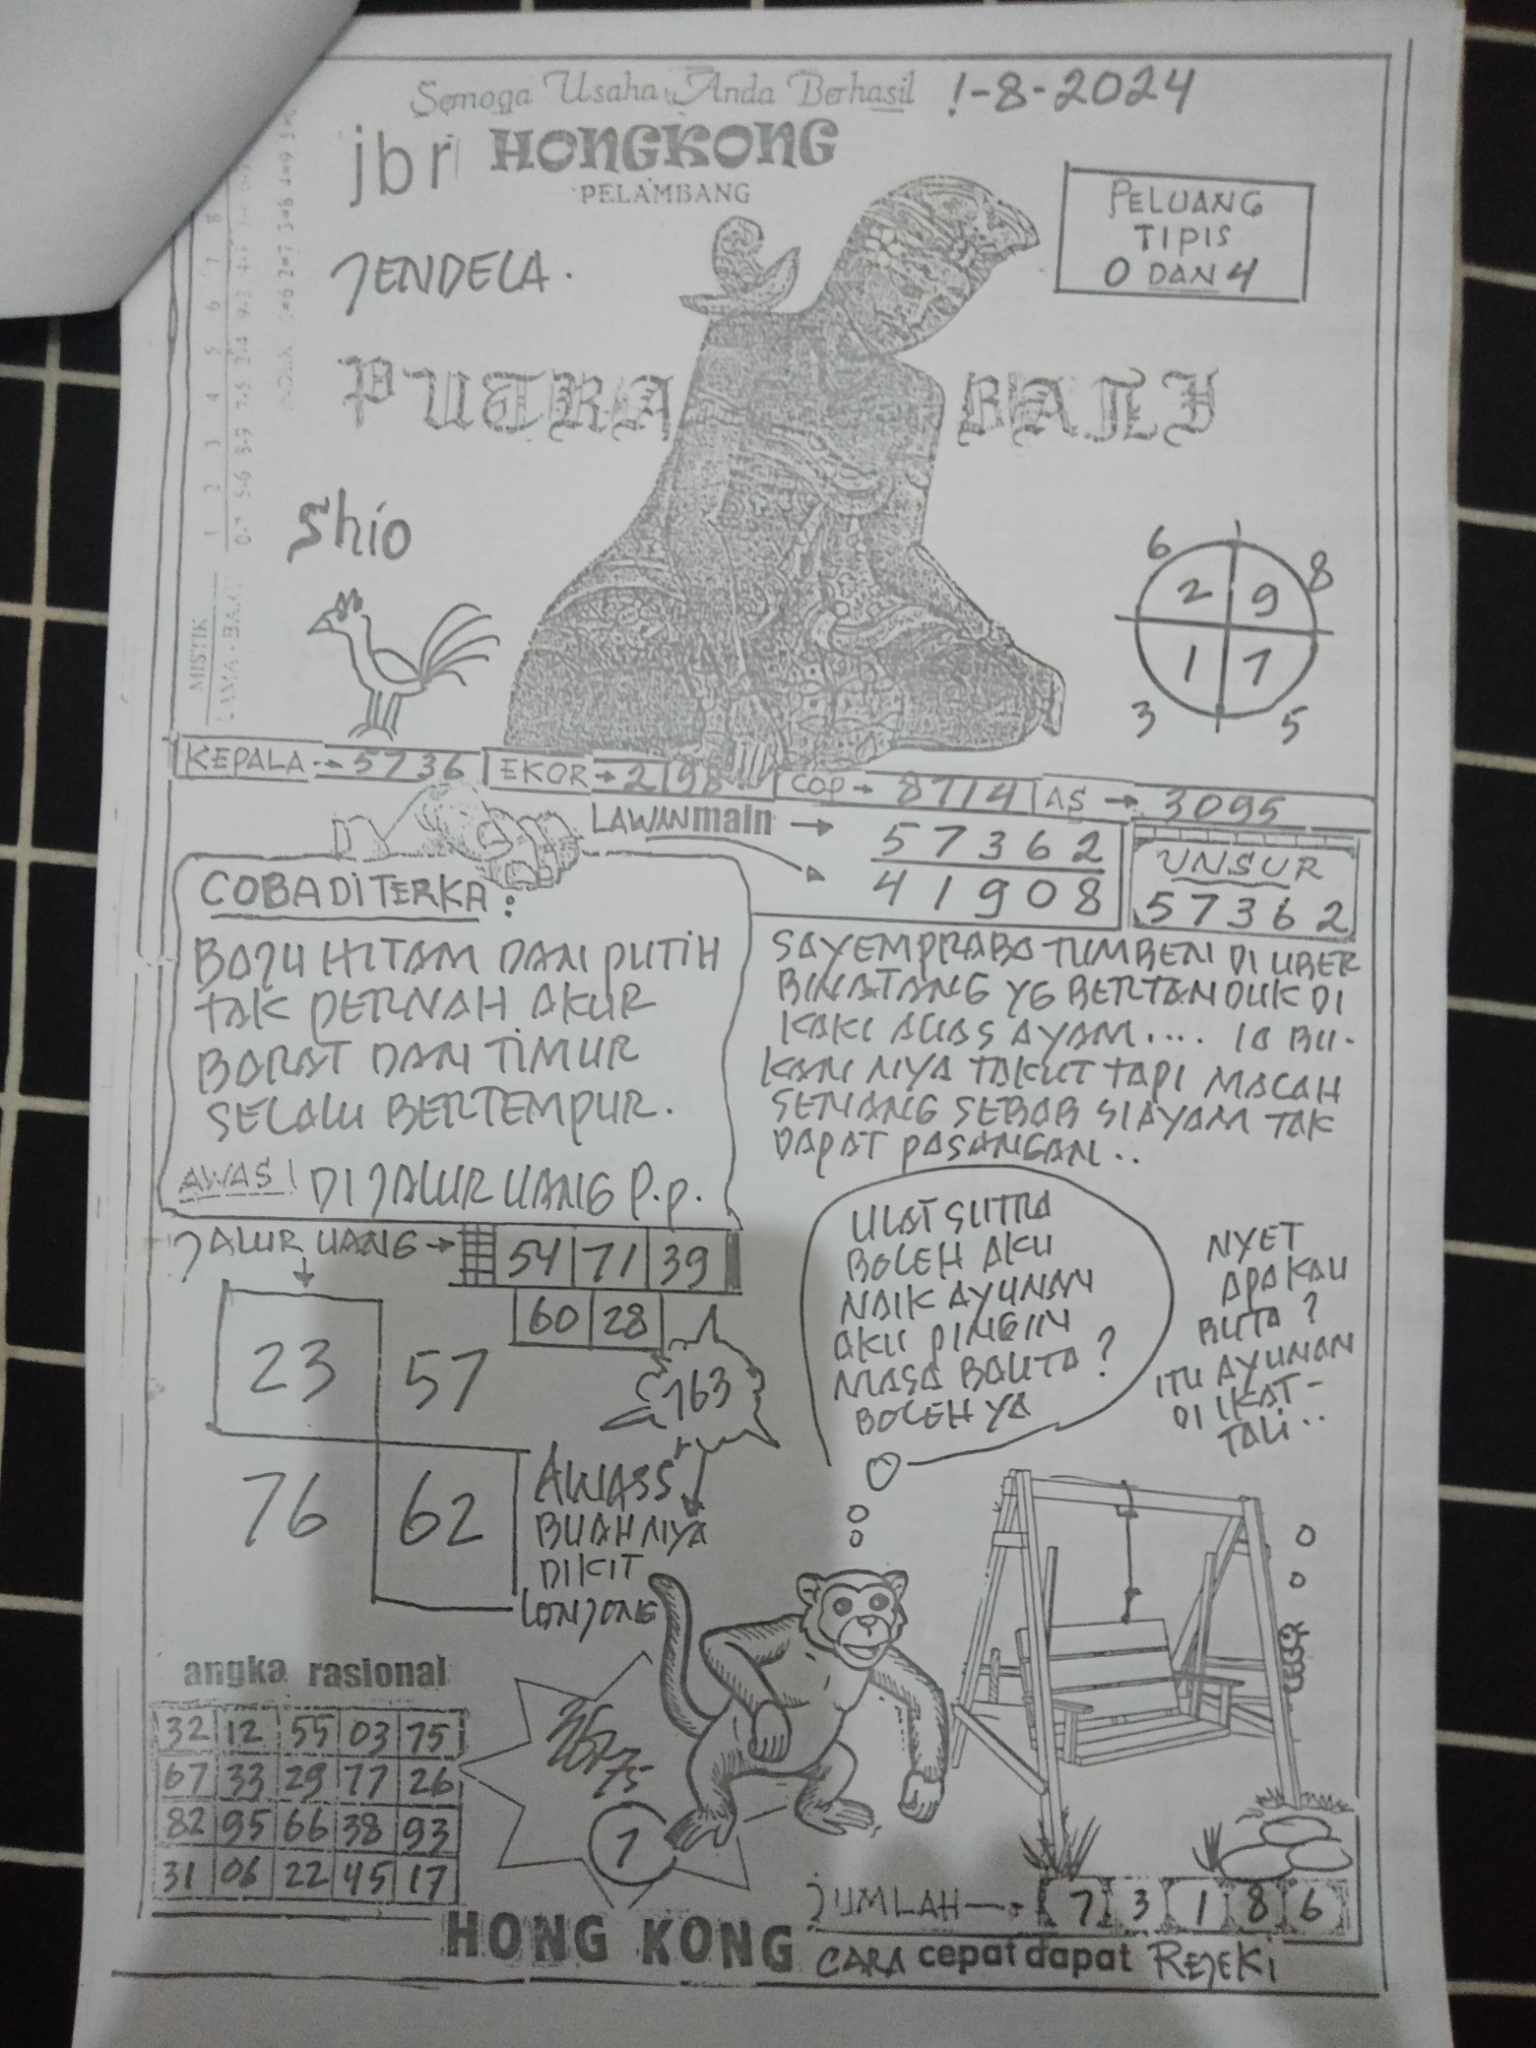 Semoga Usaha Anda Berhasil !-8-2024
jbr HONGKONG
PELAMBANG
PELUANG
TIPIS
0 DAN 4
JENDELA.
PUTRA BALI
Shio
6 8
2 9
1 7
3 5
1 2 3 4 5 6 7 8
MISTIK
KEPALA → 5736 EKOR → 2198 COP → 8714 AS → 3095
LAWAN main → 57362
41908
UNSUR
57362
COBA DITERKA:
BAJU HITAM DAN PUTIH
TAK PERNAH AKUR
BARAT DAN TIMUR
SELALU BERTEMPUR.
AWAS! DI JALUR UANG P.P.
SAYEMPRABA TUMBEN DI UBER
BINATANG YG BERTANDUK DI
KAKI ALIAS AYAM.... IA BU-
KAN NYA TAKUT TAPI MALAH
SENANG SEBAB SI AYAM TAK
DAPAT PASANGAN..
JALUR UANG → 54 71 39
60 28
23 57
76 62
763
AWASS
BUAHNYA
DIKIT
LONJONG
ULAT SUTRA
BOLEH AKU
NAIK AYUNAN
AKU PINGIN
MASA BALITA?
BOLEH YA
NYET
APA KAU
BUTA?
ITU AYUNAN
DI IKAT-
TALI..
angka rasional
32 12 55 03 75
67 33 29 77 26
82 95 66 38 93
31 06 22 45 17
75
7
JUMLAH → 7 3 1 8 6
HONG KONG CARA cepat dapat REJEKI